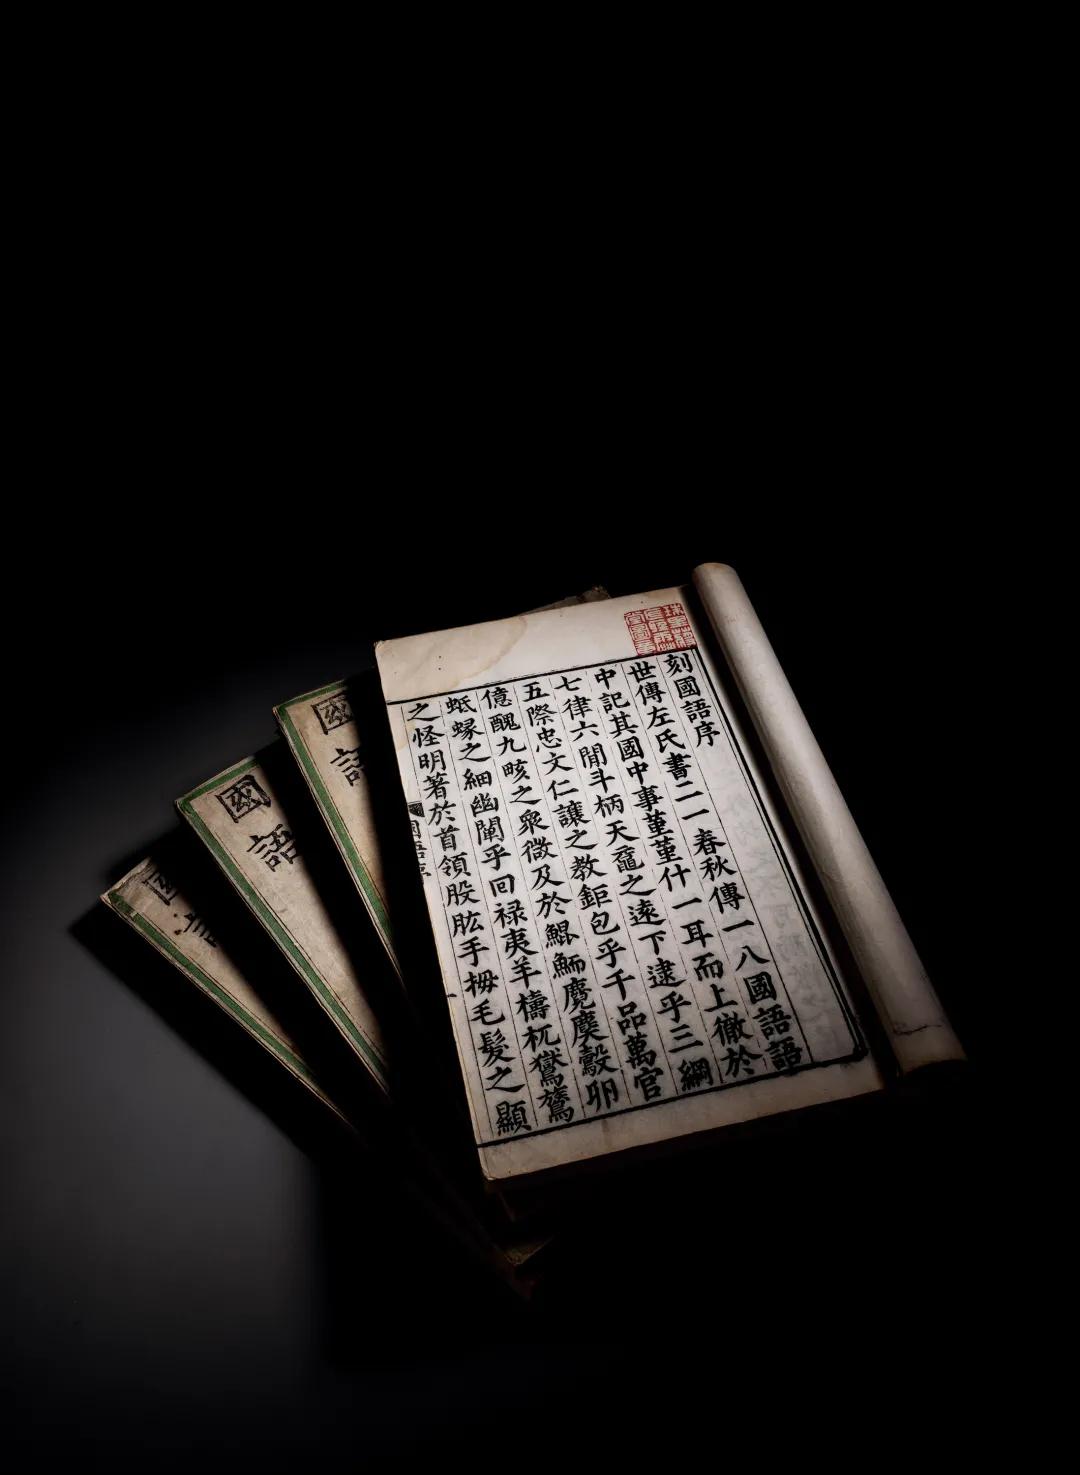 刻國語序
世傳左氏書二一春秋傳一八國語語
中記其國中事菫菫什一耳而上徹於
七律六閒斗柄天黿之遠下逮乎三綱
五際忠文仁讓之教鉅包乎千品萬官
億醜九畡之衆微及於鯤鮞卵
蚳蝝之細幽闡乎回禄夷羊檮杌鸑鷟
之怪明著於首領股肱手拇毛髮之顯
國語
國語
國